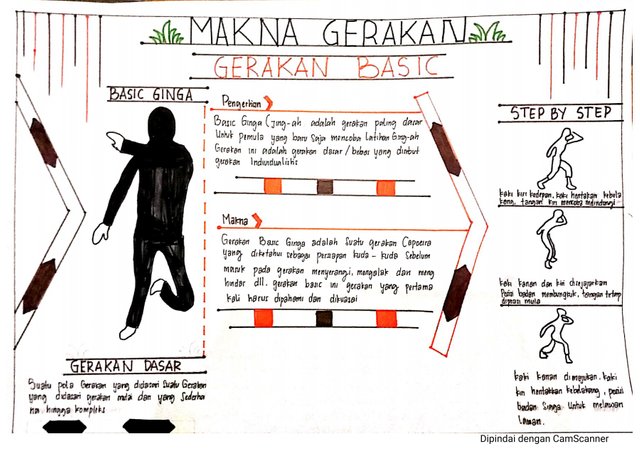 MAKNA GERAKAN
GERAKAN BASIC
BASIC GINGA
Pengertian
Basic Ginga (Jing-ah adalah gerakan paling dasar
Untuk Pemula yang baru saja mencoba Latihan Ging-ah
Gerakan ini adalah gerakan dasar / bebas yang disebut
gerakan Indundualistis
Makna
Gerakan Basic Ginga adalah Suatu gerakan Capoeira
yang diketahui sebagai persiapan kuda - kuda Sebelum
masuk pada gerakan menyerangi, mengelak dan meng
hindar dll. gerakan basic ini gerakan yang pertama
kali harus dipahami dan dikuasai
STEP BY STEP
kaki kiri kedepan, kaki hentakan kebela
kang, tangan kiri mencoba melindungi
kaki kanan dan kiri disejajarkan
Posisi badan membungkuk, tangan tetap
kaki kanan dimajukan, kaki
kiri hentakkan kebelakang, posisi
badan Singa Untuk melawan
laman.
GERAKAN DASAR
Suatu pola Gerakan yang didasari Suatu Gerakan
yang didasari gerakan mulai dan yang Sederha
na hingga kompleks
Dipindai dengan CamScanner